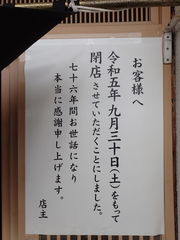 お客様へ
令和五年九月三十日(土)をもって
閉店させていただくことにしました。
七十六年間お世話になり
本当に感謝申し上げます。
店主